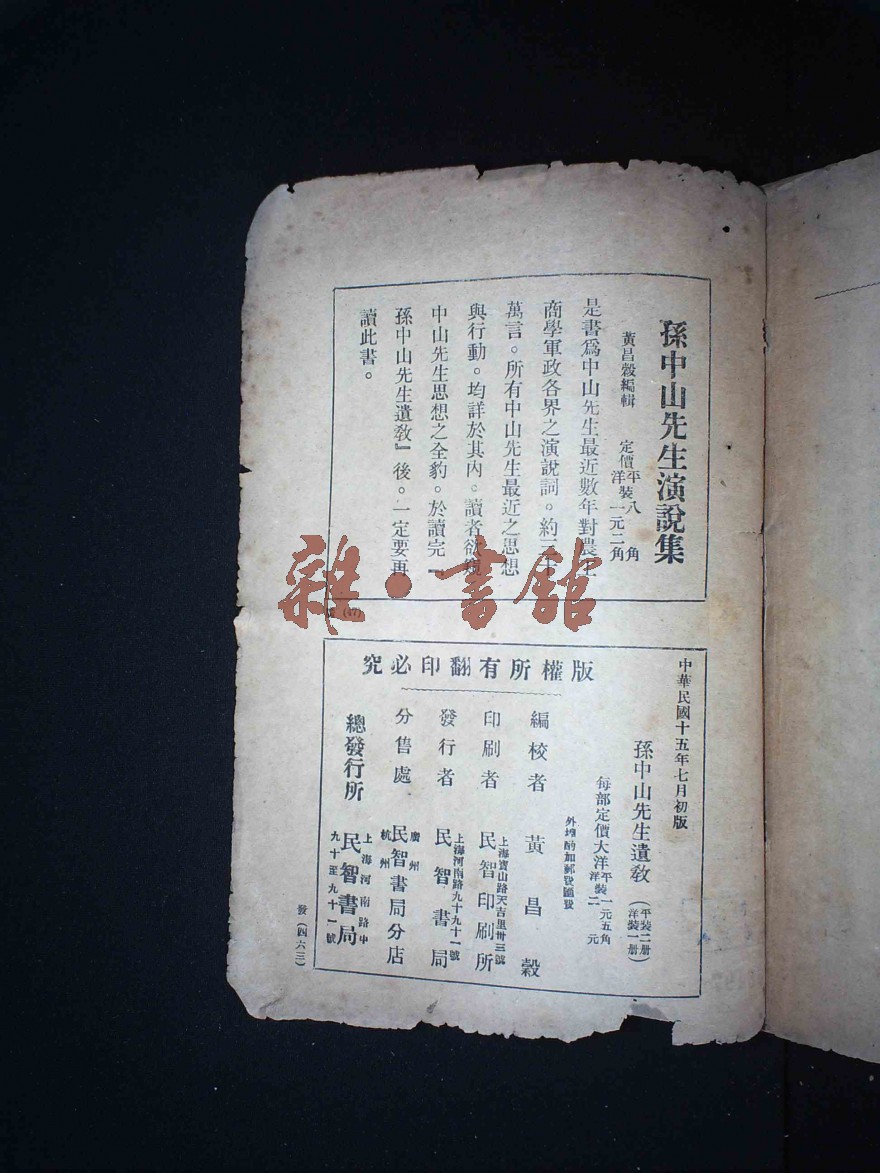 孫中山先生演說集
黃昌穀編輯
定價平裝八角
洋裝一元二角
是書爲中山先生最近數年對農工
商學軍政各界之演說詞。約三十
萬言。所有中山先生最近之思想
與行動。均詳於其內。讀者欲窺
中山先生思想之全豹。於讀完『
孫中山先生遺敎』後。一定要再
讀此書。
(47)
雜·書館
中華民國十五年七月初版
孫中山先生遺敎
(平裝二册
洋裝一册)
每部定價大洋平裝一元五角
洋裝二元
外埠酌加郵費匯費
版權所有翻印必究
編校者 黃昌穀
印刷者 上海寶山路天吉里卅三號
民智印刷所
發行者 上海河南路九十九十一號
民智書局
分售處 廣州
杭州
民智書局分店
總發行所 上海河南路中
九十至九十一號
民智書局
發(四六三)